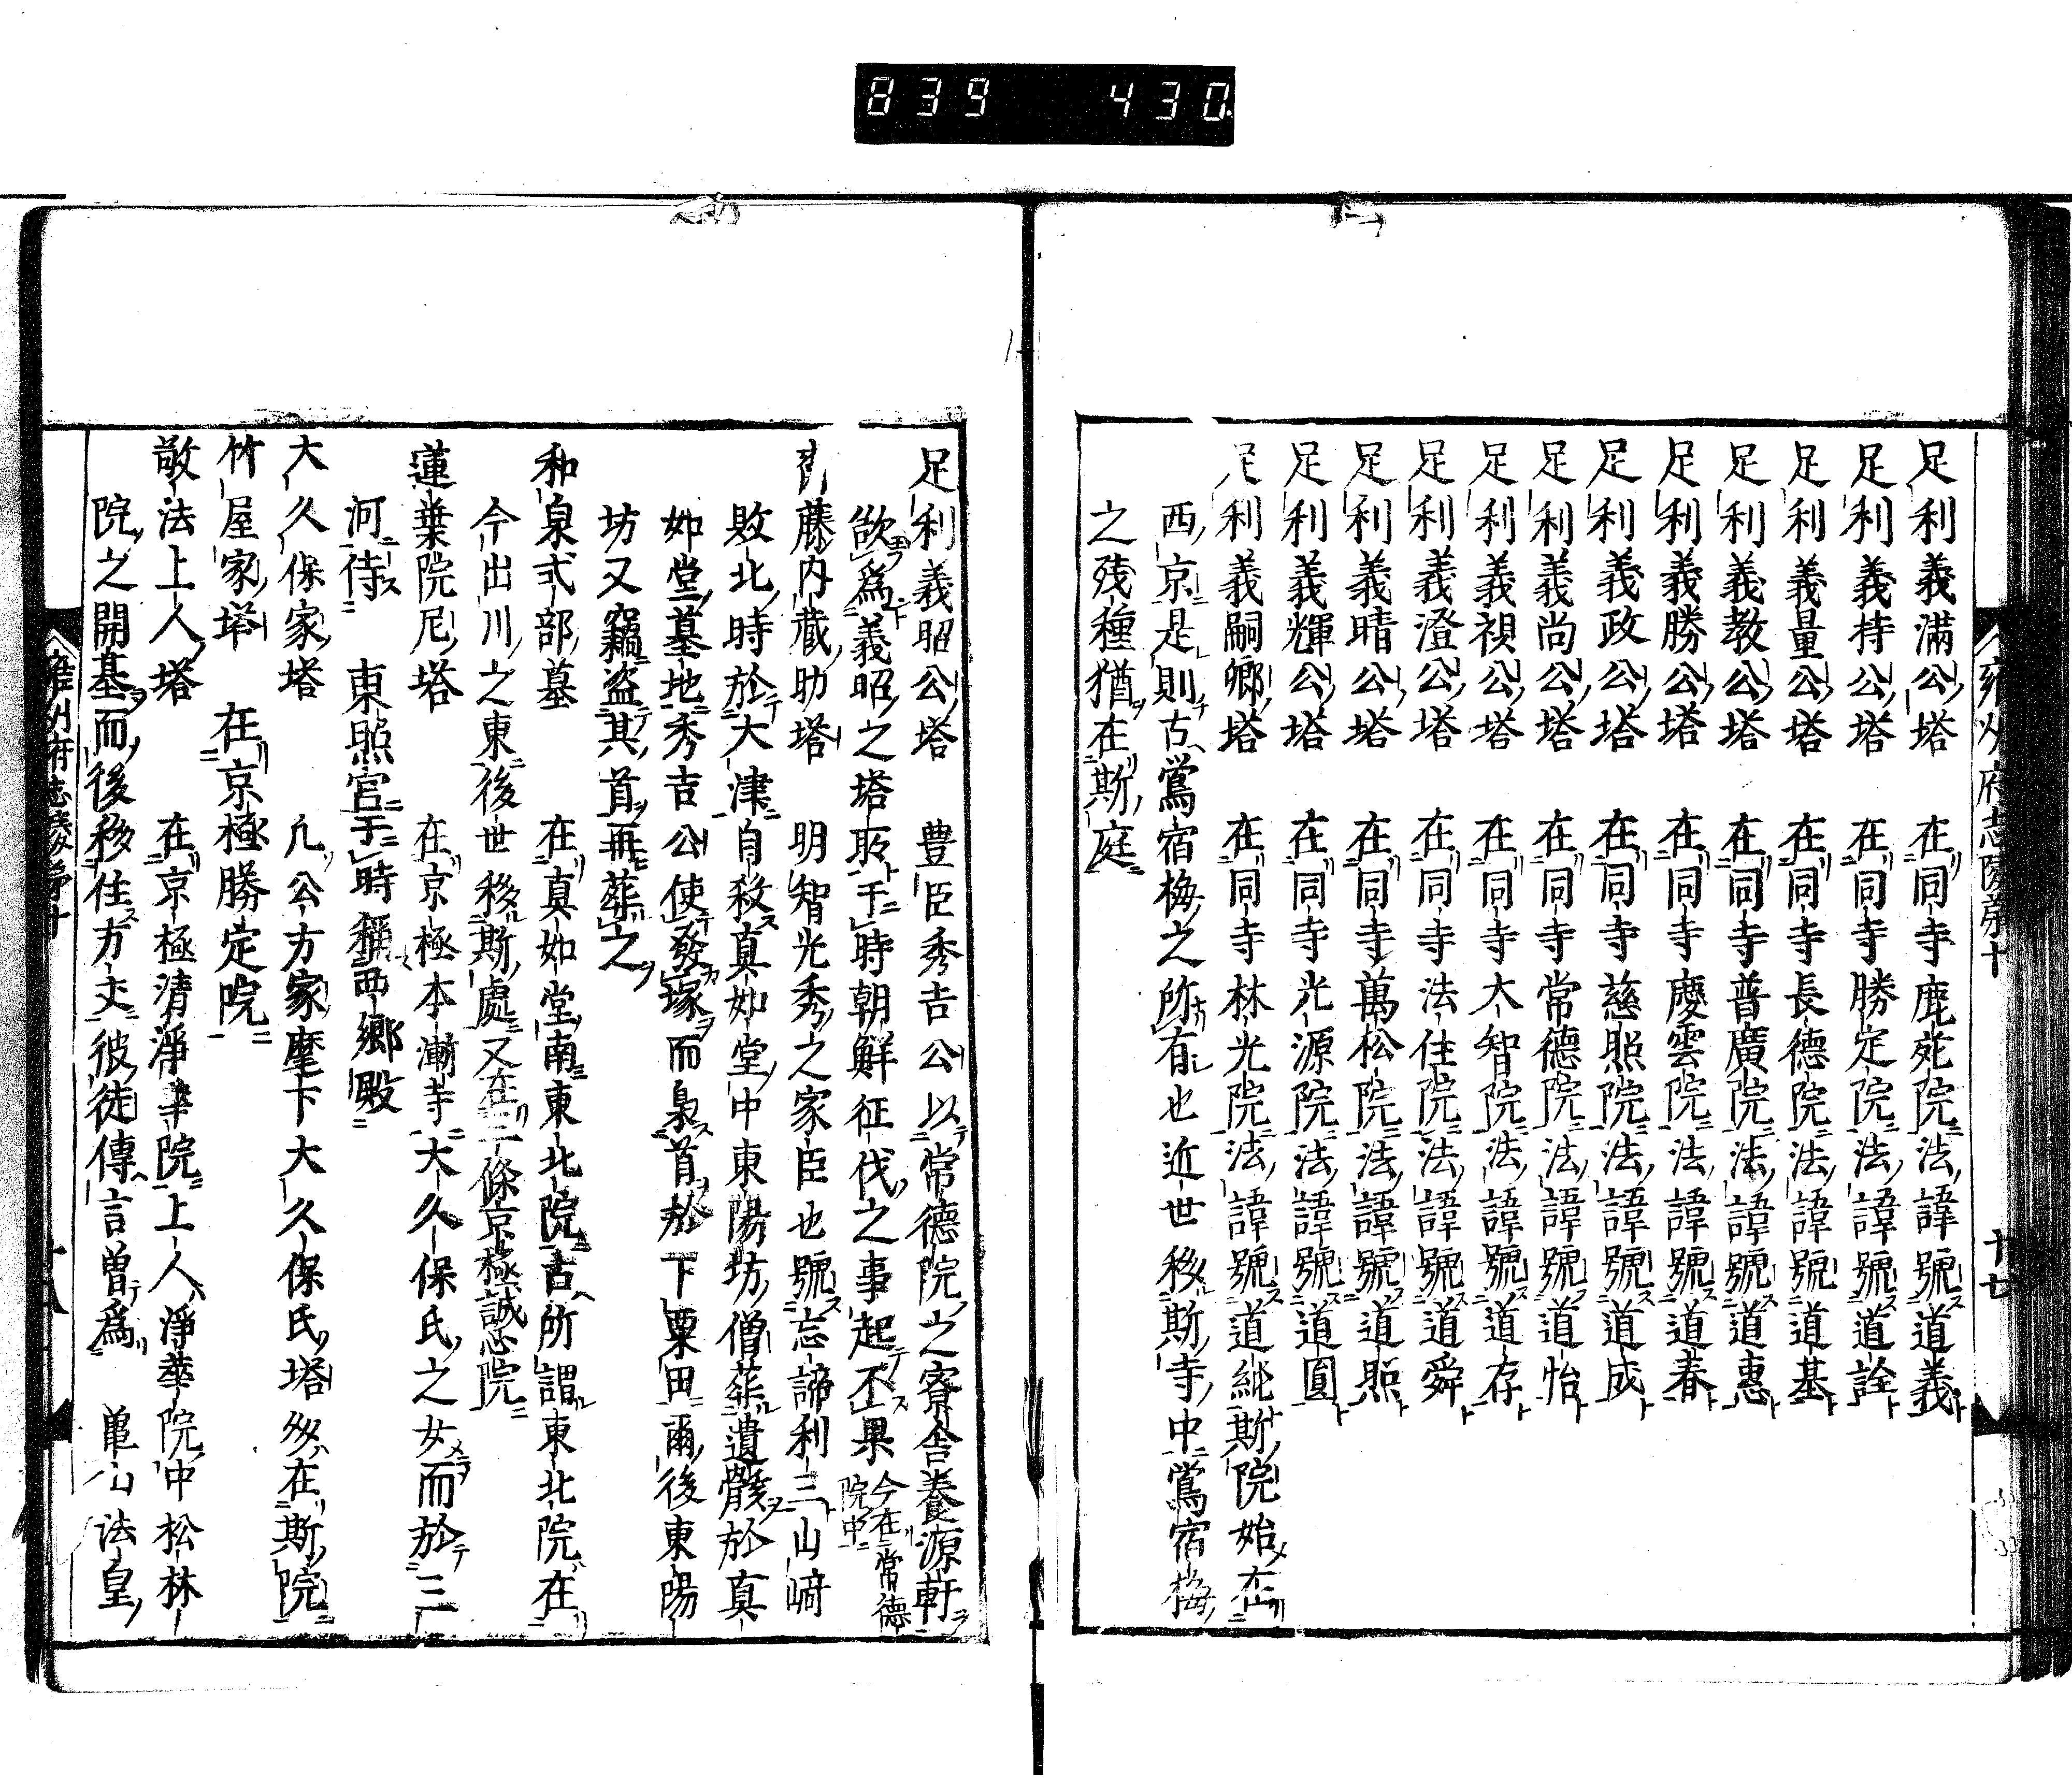 839 430
雍州府志陵第十 十七
足利義滿公塔 在同寺鹿苑院法諱號道義
足利義持公塔 在同寺勝定院法諱號道詮
足利義量公塔 在同寺長德院法諱號道基
足利義教公塔 在同寺普廣院法諱號道惠
足利義勝公塔 在同寺慶雲院法諱號道春
足利義政公塔 在同寺慈照院法諱號道成
足利義尚公塔 在同寺常德院法諱號道怡
足利義視公塔 在同寺大智院法諱號道存
足利義澄公塔 在同寺法住院法諱號道舜
足利義晴公塔 在同寺萬松院法諱號道照
足利義輝公塔 在同寺光源院法諱號道圓
足利義嗣卿塔 在同寺林光院法諱號道純斯院始在
西京是則古鶯宿梅之所有也近世移斯寺中鶯宿梅
之殘種猶在斯庭
足利義昭公塔 豊臣秀吉公以常德院之寮舍養源軒
欲爲義昭之塔耶于時朝鮮征伐之事起不果今在常德院中
藤内藏助塔 明智光秀之家臣也號忘諦利三山崎
敗北時於大津自殺真如堂中東陽坊僧葬遺骸於真
如堂墓地秀吉公使發塚而梟首於下粟田爾後東陽
坊又竊盗其首再葬之
和泉式部墓 在真如堂南東北院古所謂東北院在
今出川之東後世移斯處又在二條京極誠心院
蓮葉院尼塔 在京極本漸寺大久保氏之女而於三
河侍 東照宮于時稱西鄉殿
大久保家塔 凡公方家麾下大久保氏塔多在斯院
竹屋家塔 在京極勝定院
敬法上人塔 在京極清淨華院上人淨華院中松林
院之開基而後移住方丈彼徒傳言曽爲 龜山法皇
雍州府志陵第十 十八